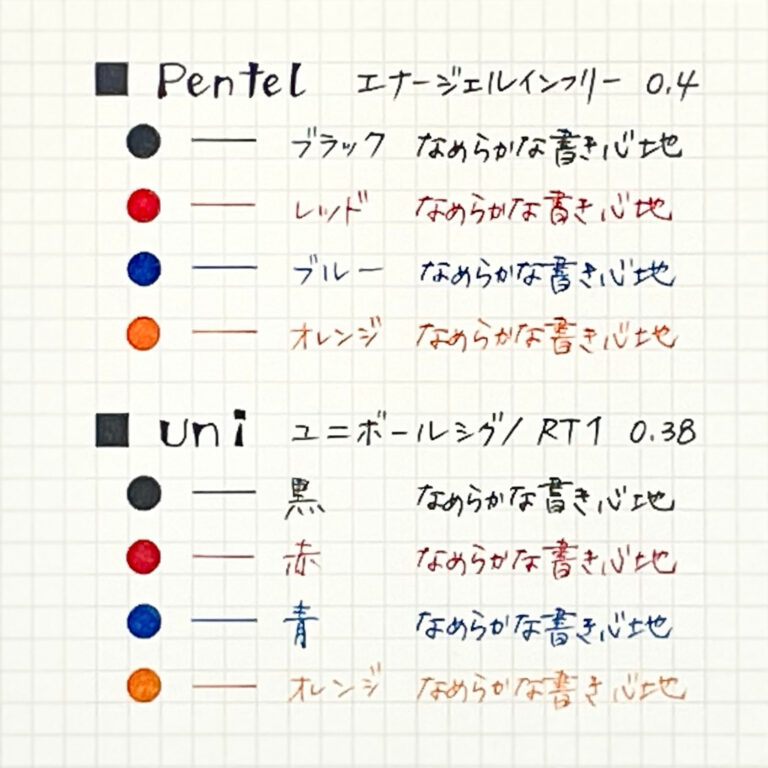 ■ Pentel エナージェルインフリー 0.4
● — ブラック なめらかな書き心地
● — レッド なめらかな書き心地
● — ブルー なめらかな書き心地
● — オレンジ なめらかな書き心地
■ uni ユニボールシグノ RT1 0.38
● — 黒 なめらかな書き心地
● — 赤 なめらかな書き心地
● — 青 なめらかな書き心地
● — オレンジ なめらかな書き心地